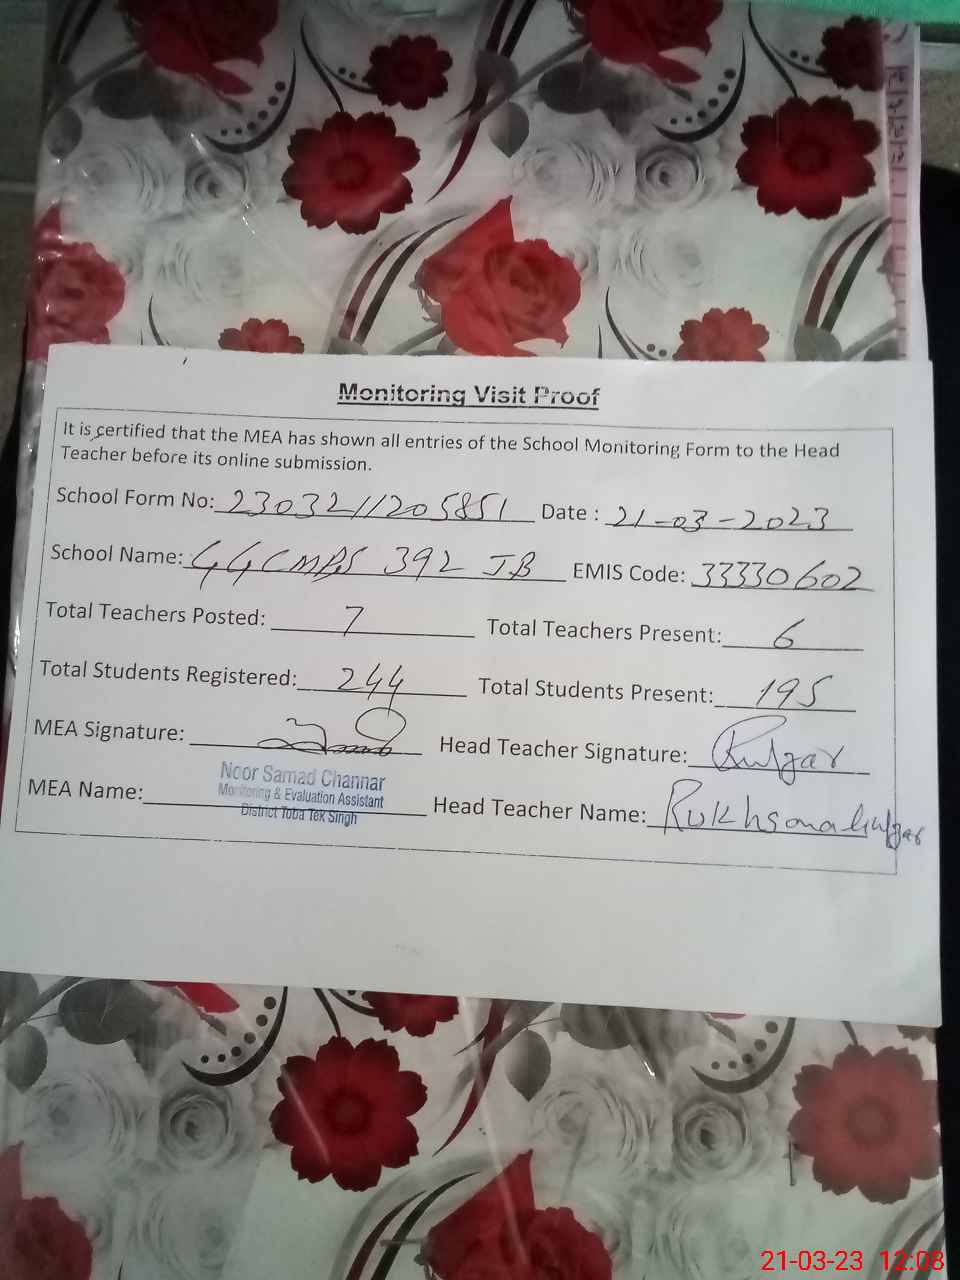 Monitoring Visit Proof
It is certified that the MEA has shown all entries of the School Monitoring Form to the Head
Teacher before its online submission.
School Form No: 2303211205851 Date : 21-03-2023
School Name: GGCMPS 392 JB EMIS Code: 33330602
Total Teachers Posted: 7 Total Teachers Present: 6
Total Students Registered: 244 Total Students Present: 195
MEA Signature: Head Teacher Signature:
Noor Samad Channar
Monitoring & Evaluation Assistant
District Toba Tek Singh
MEA Name: Head Teacher Name: Rukhsana
21-03-23 12:08